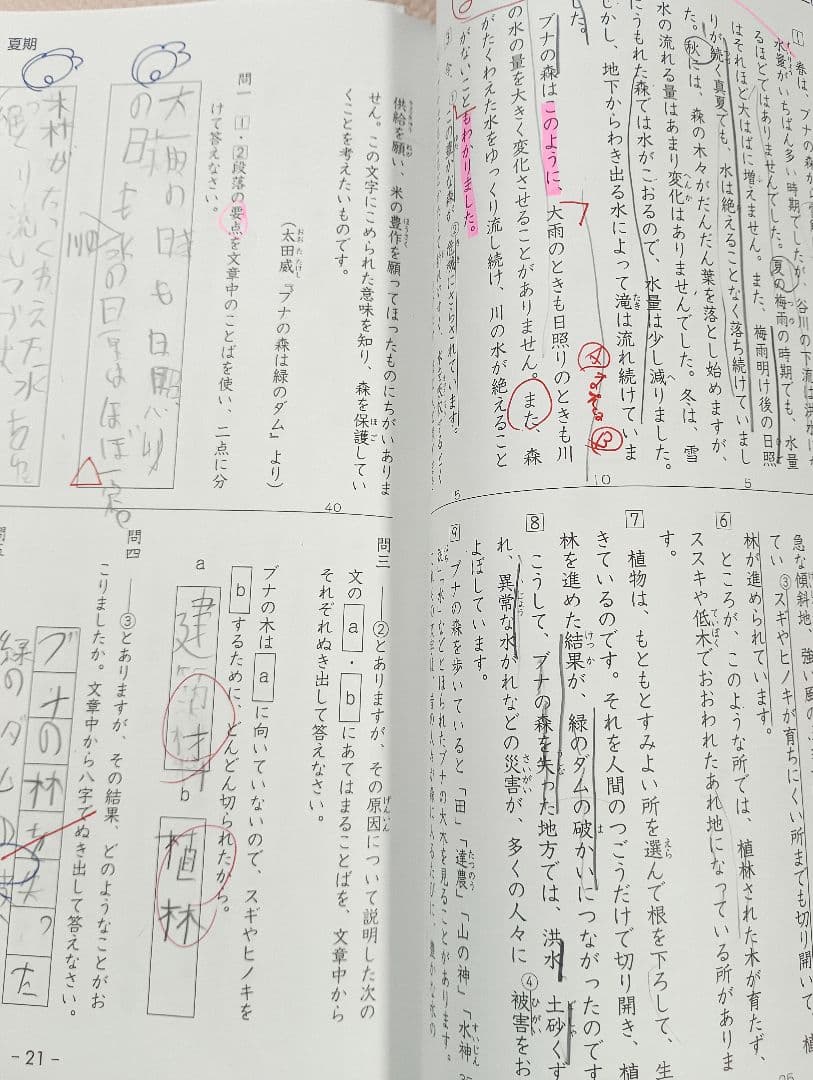 ①　春は、ブナの森から
水量がいちばん多い時期でしたが、谷川の下流は洪水に
るほどではありませんでした。夏の梅雨の時期でも、水量
はそれほど大はばに増えません。また、梅雨明け後の日照
りが続く真夏でも、水は絶えることなく落ち続けていまし
た。秋には、森の木々がだんだん葉を落とし始めますが、
水の流れる量はあまり変化はありませんでした。冬は、雪
にうもれた森では水がこおるので、水量は少し減りました。
しかし、地下からわき出る水によって滝は流れ続けていま
した。
ブナの森はこのように、大雨のときも日照りのときも川
の水の量を大きく変化させることがありません。また、森
がたくわえた水をゆっくり流し続け、川の水が絶えること
がないこともわかりました。
5
10
5
急な傾斜地、強い風の
てい③スギやヒノキが育ちにくい所までも切り開いて、植
林が進められています。
⑥　ところが、このような所では、植林された木が育たず、
ススキや低木でおおわれたあれ地になっている所がありま
す。
⑦　植物は、もともとすみよい所を選んで根を下ろして、生
きているのです。それを人間のつごうだけで切り開き、植
林を進めた結果が、緑のダムの破かいにつながったのです
⑧　こうして、ブナの森を失った地方では、洪水、土砂くず
れ、異常な水がれなどの災害が、多くの人々に④被害をお
よぼしています。
⑨　ブナの森を歩いていると「田」「達農」「山の神」「水神
夏期
供給を願い、米の豊作を願ってほったものにちがいありま
せん。この文字にこめられた意味を知り、森を保護してい
くことを考えたいものです。
（太田威『ブナの森は緑のダム』より）
40
問一　①・②段落の要点を文章中のことばを使い、二点に分
けて答えなさい。
大雨の時も日照り
の日も水の日原はほぼ一定
木林がたくわえた水を
問三　――②とありますが、その原因について説明した次の
文の a・b にあてはまることばを、文章中から
それぞれぬき出して答えなさい。
ブナの木は a に向いていないので、スギやヒノキを
b するために、どんどん切られたから。
a
建築材
b
植林
問四　――③とありますが、その結果、どのようなことがお
こりましたか。文章中から八字でぬき出して答えなさい。
ブナの林を失った
緑のダムの破
- 21 -